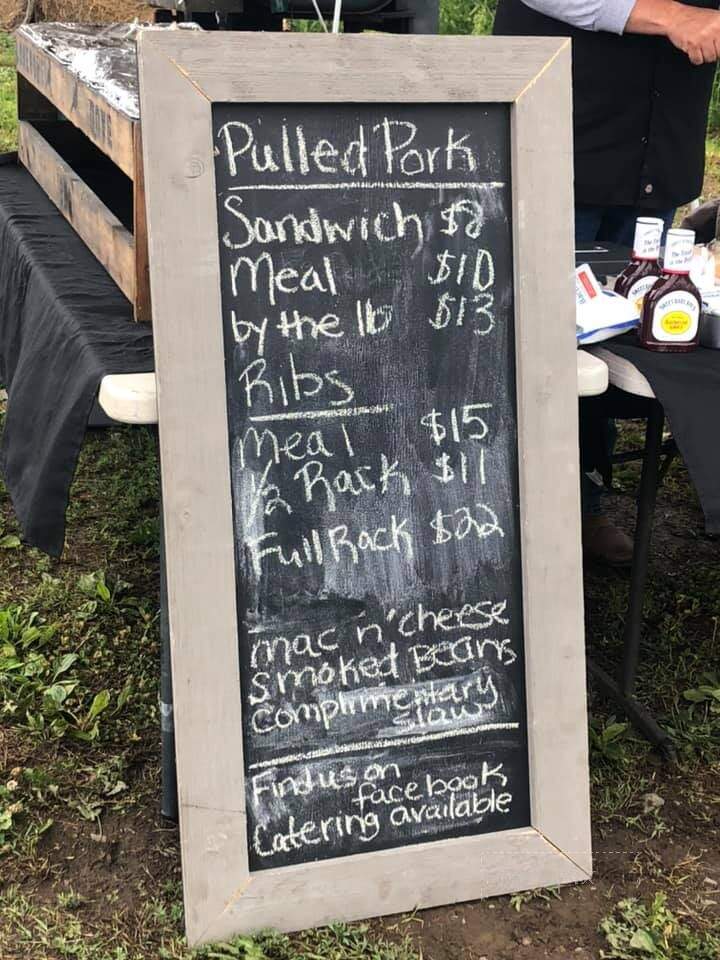 Pulled Pork
Sandwich $8
Meal $10
by the lb $13
Ribs
Meal $15
1/2 Rack $11
Full Rack $22
mac n' cheese
Smoked Beans
Complimentary
slaw
Find us on
facebook
Catering available